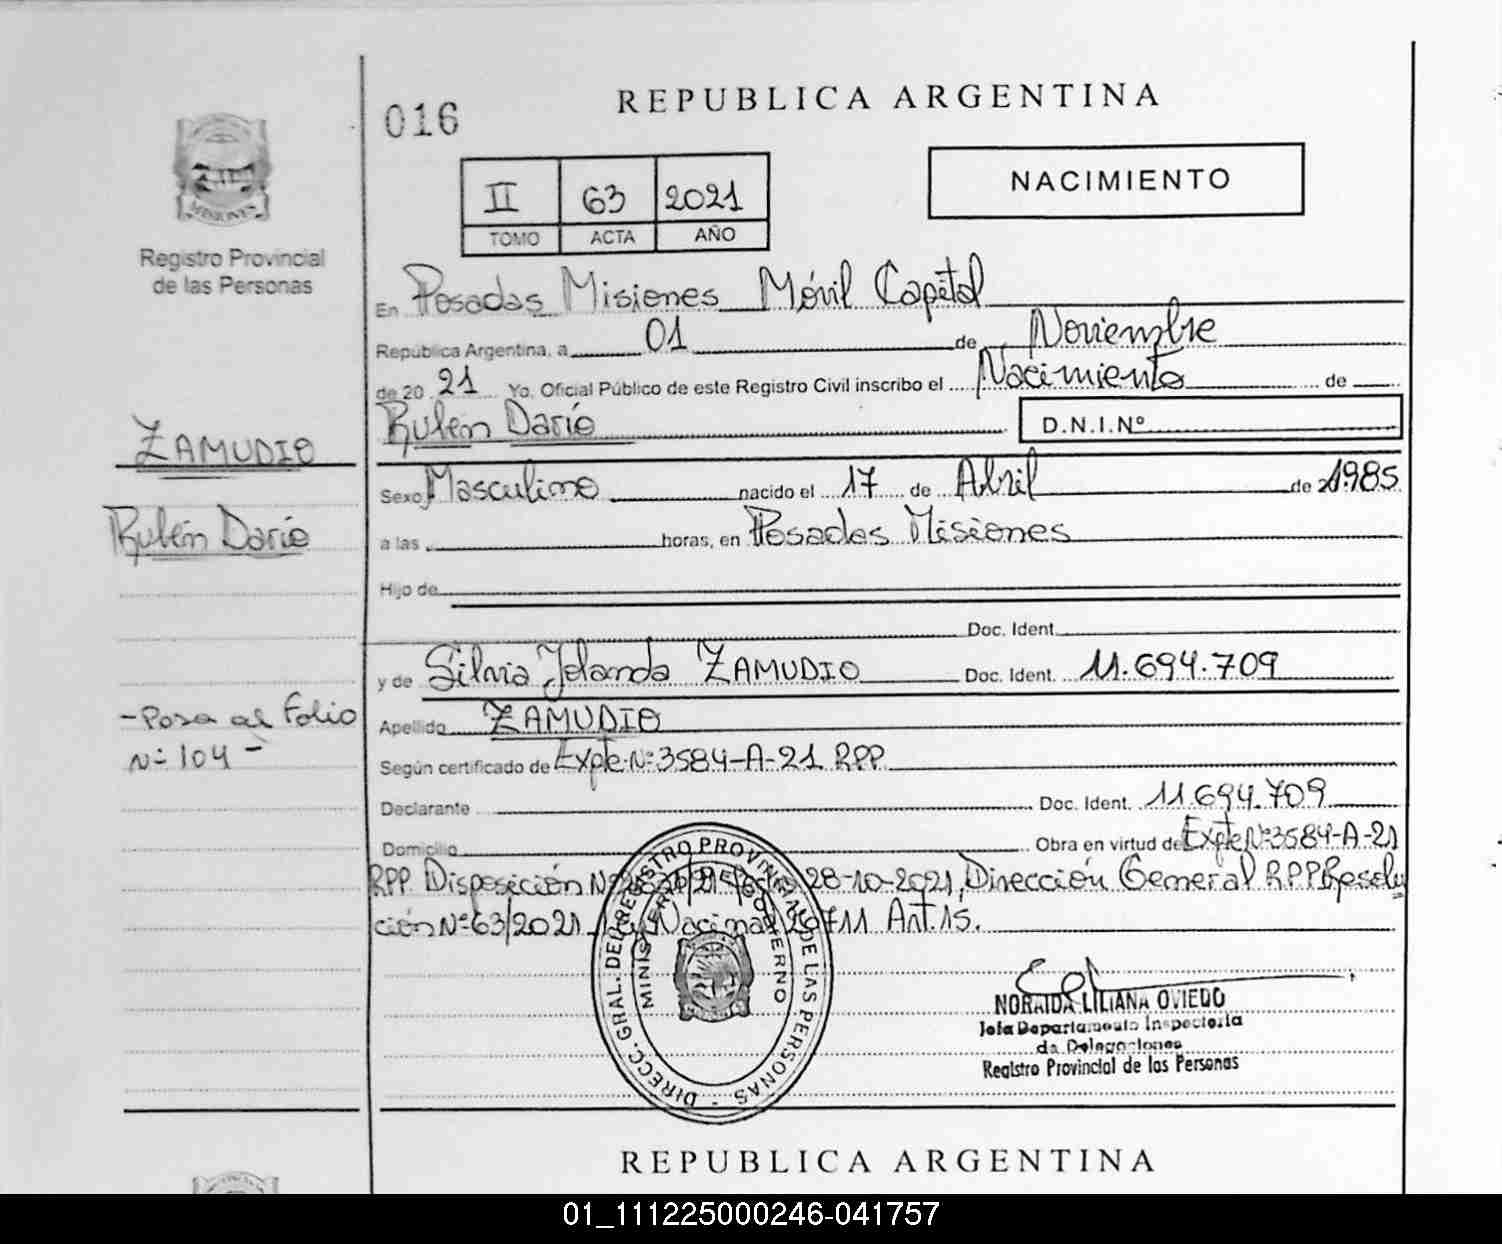 REPUBLICA ARGENTINA
016
NACIMIENTO
II 63 2021
TOMO ACTA AÑO
MISIONES
Registro Provincial
de las Personas
En Posadas Misiones Móvil Capital
República Argentina, a 01 de Noviembre
de 20 21 Yo, Oficial Público de este Registro Civil inscribo el Nacimiento de
Rubén Darío D.N.I.Nº
ZAMUDIO
Rubén Darío
Sexo Masculino nacido el 17 de Abril de 1985
a las horas, en Posadas Misiones
Hijo de
Doc. Ident.
y de Silvia Yolanda ZAMUDIO Doc. Ident. 11.694.709
- Pasa al Folio
Nº 104 -
Apellido ZAMUDIO
Según certificado de Expte Nº 3584-A-21 RPP
Declarante Doc. Ident. 11.694.709
Domicilio Obra en virtud de Expte Nº 3584-A-21
RPP Disposición Nº 28-10-2021, Dirección General RPP Resolu
ción Nº 63/2021 Ley Nacional Art. 15.
DIRECC. GRAL. DEL REGISTRO PROVINCIAL DE LAS PERSONAS
MINISTERIO DE GOBIERNO
NORAIDA LILIANA OVIEDO
Jefa Departamento Inspectoría
de Delegaciones
Registro Provincial de las Personas
REPUBLICA ARGENTINA
01_111225000246-041757